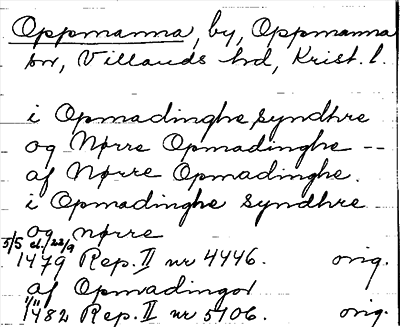 Oppmanna, by, Oppmanna
sn, Villands hd, Krist. l.
i Opmadinghe syndhre
og Nørre Opmadinghe --
af Nørre Opmadinghe.
i Opmadinghe syndhre
og nørre
5/5 el. 22/9
1479 Rep. II nr 4446. orig.
af Opmadingor
1/11
1482 Rep. II nr 5106. orig.